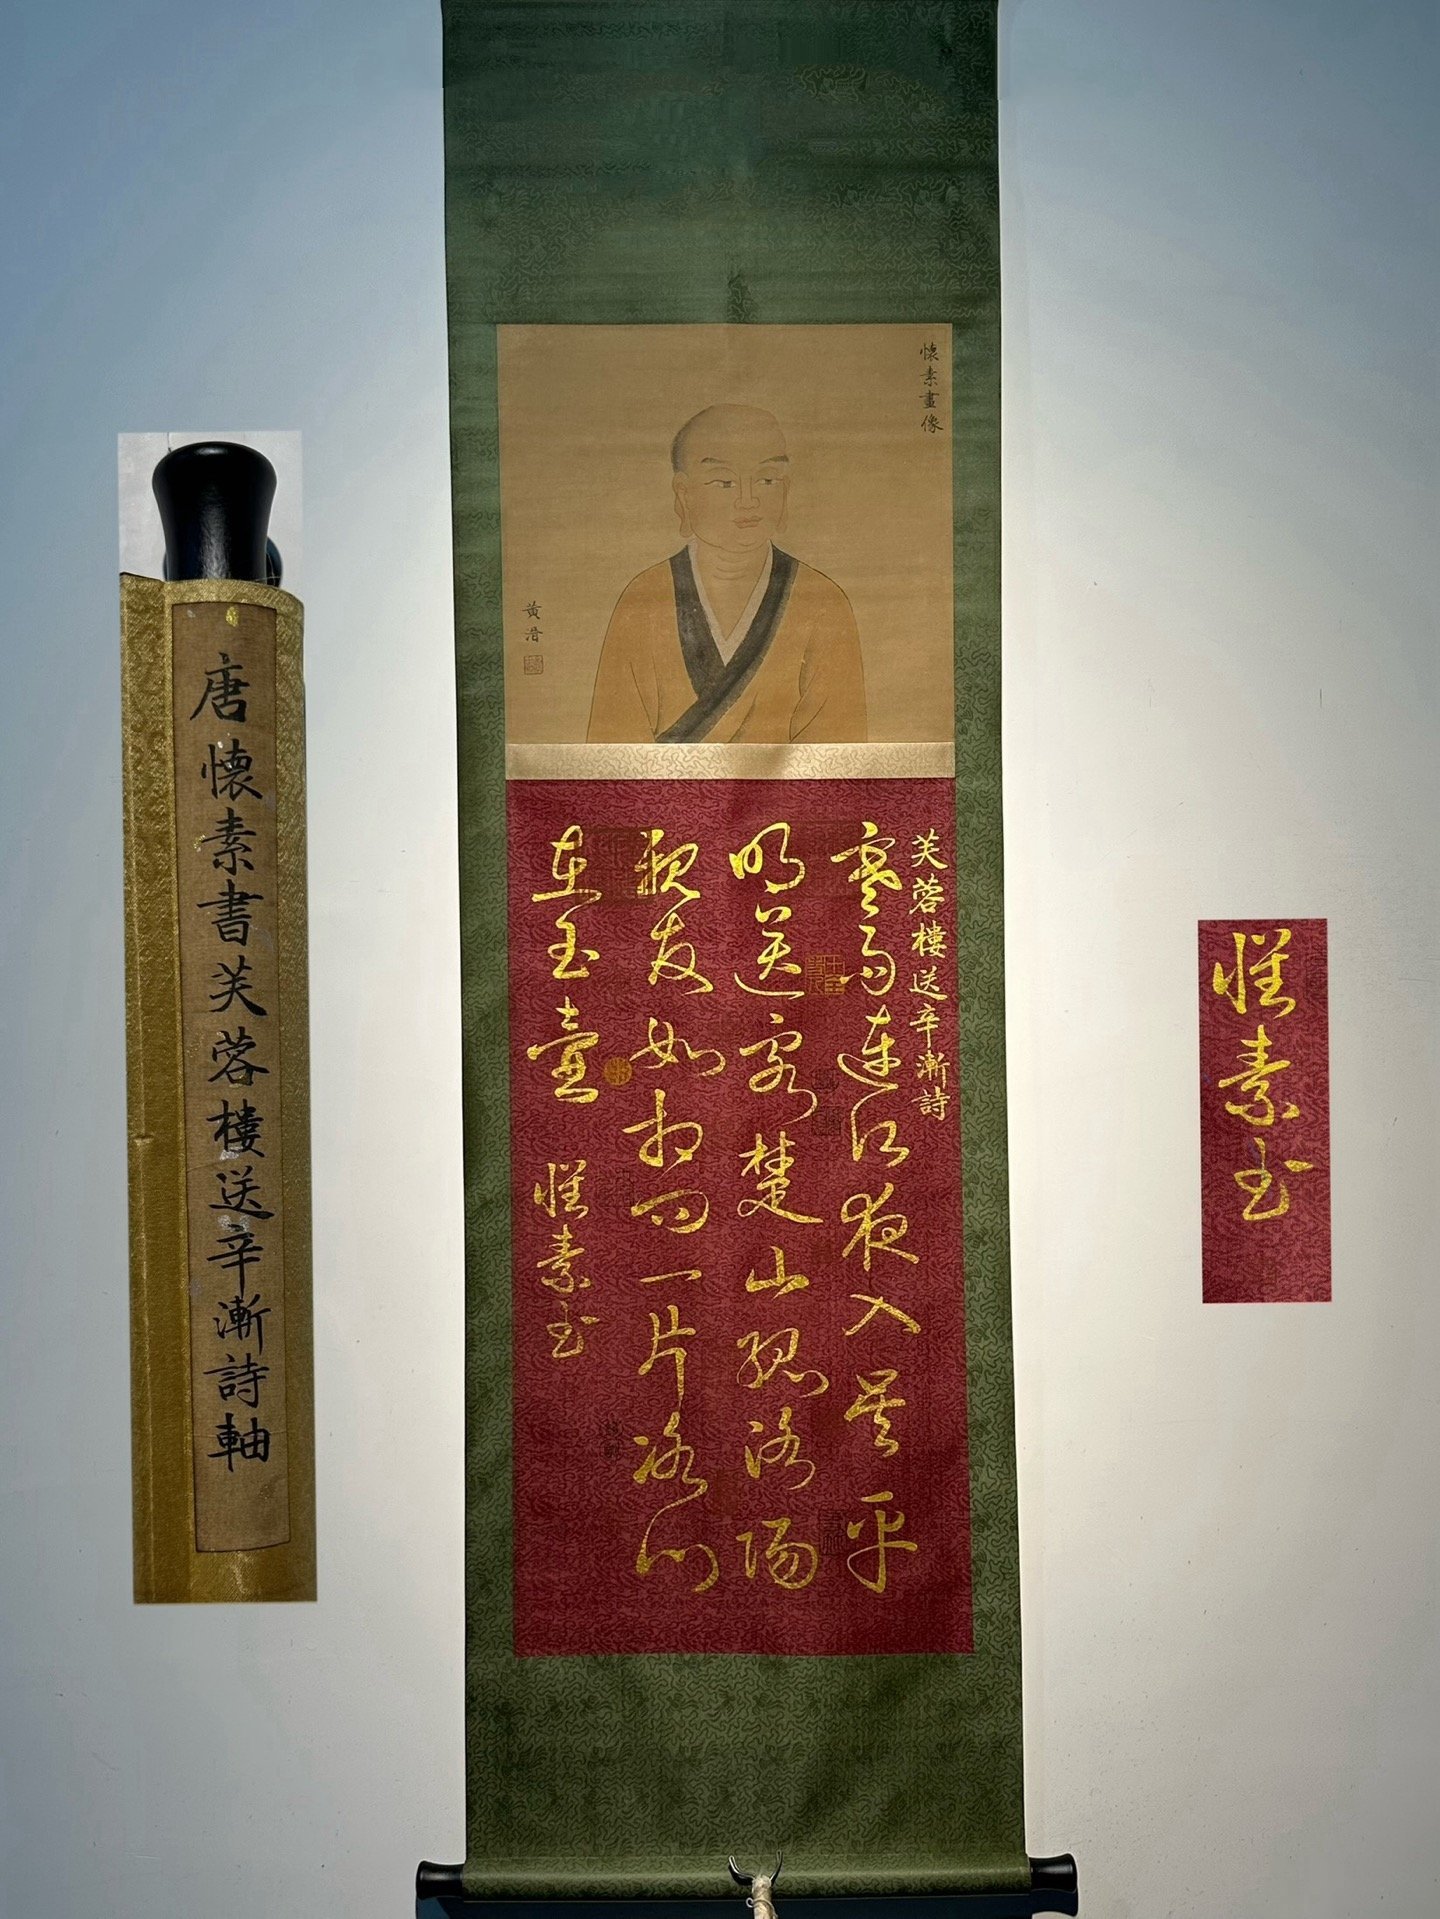 唐懷素書芙蓉樓送辛漸詩軸
懷素畫像
黃
芙蓉樓送辛漸詩
寒雨連江夜入吳平
明送客楚山孤洛陽
親友如相問一片冰心
在玉壺
懷素書
懷素書